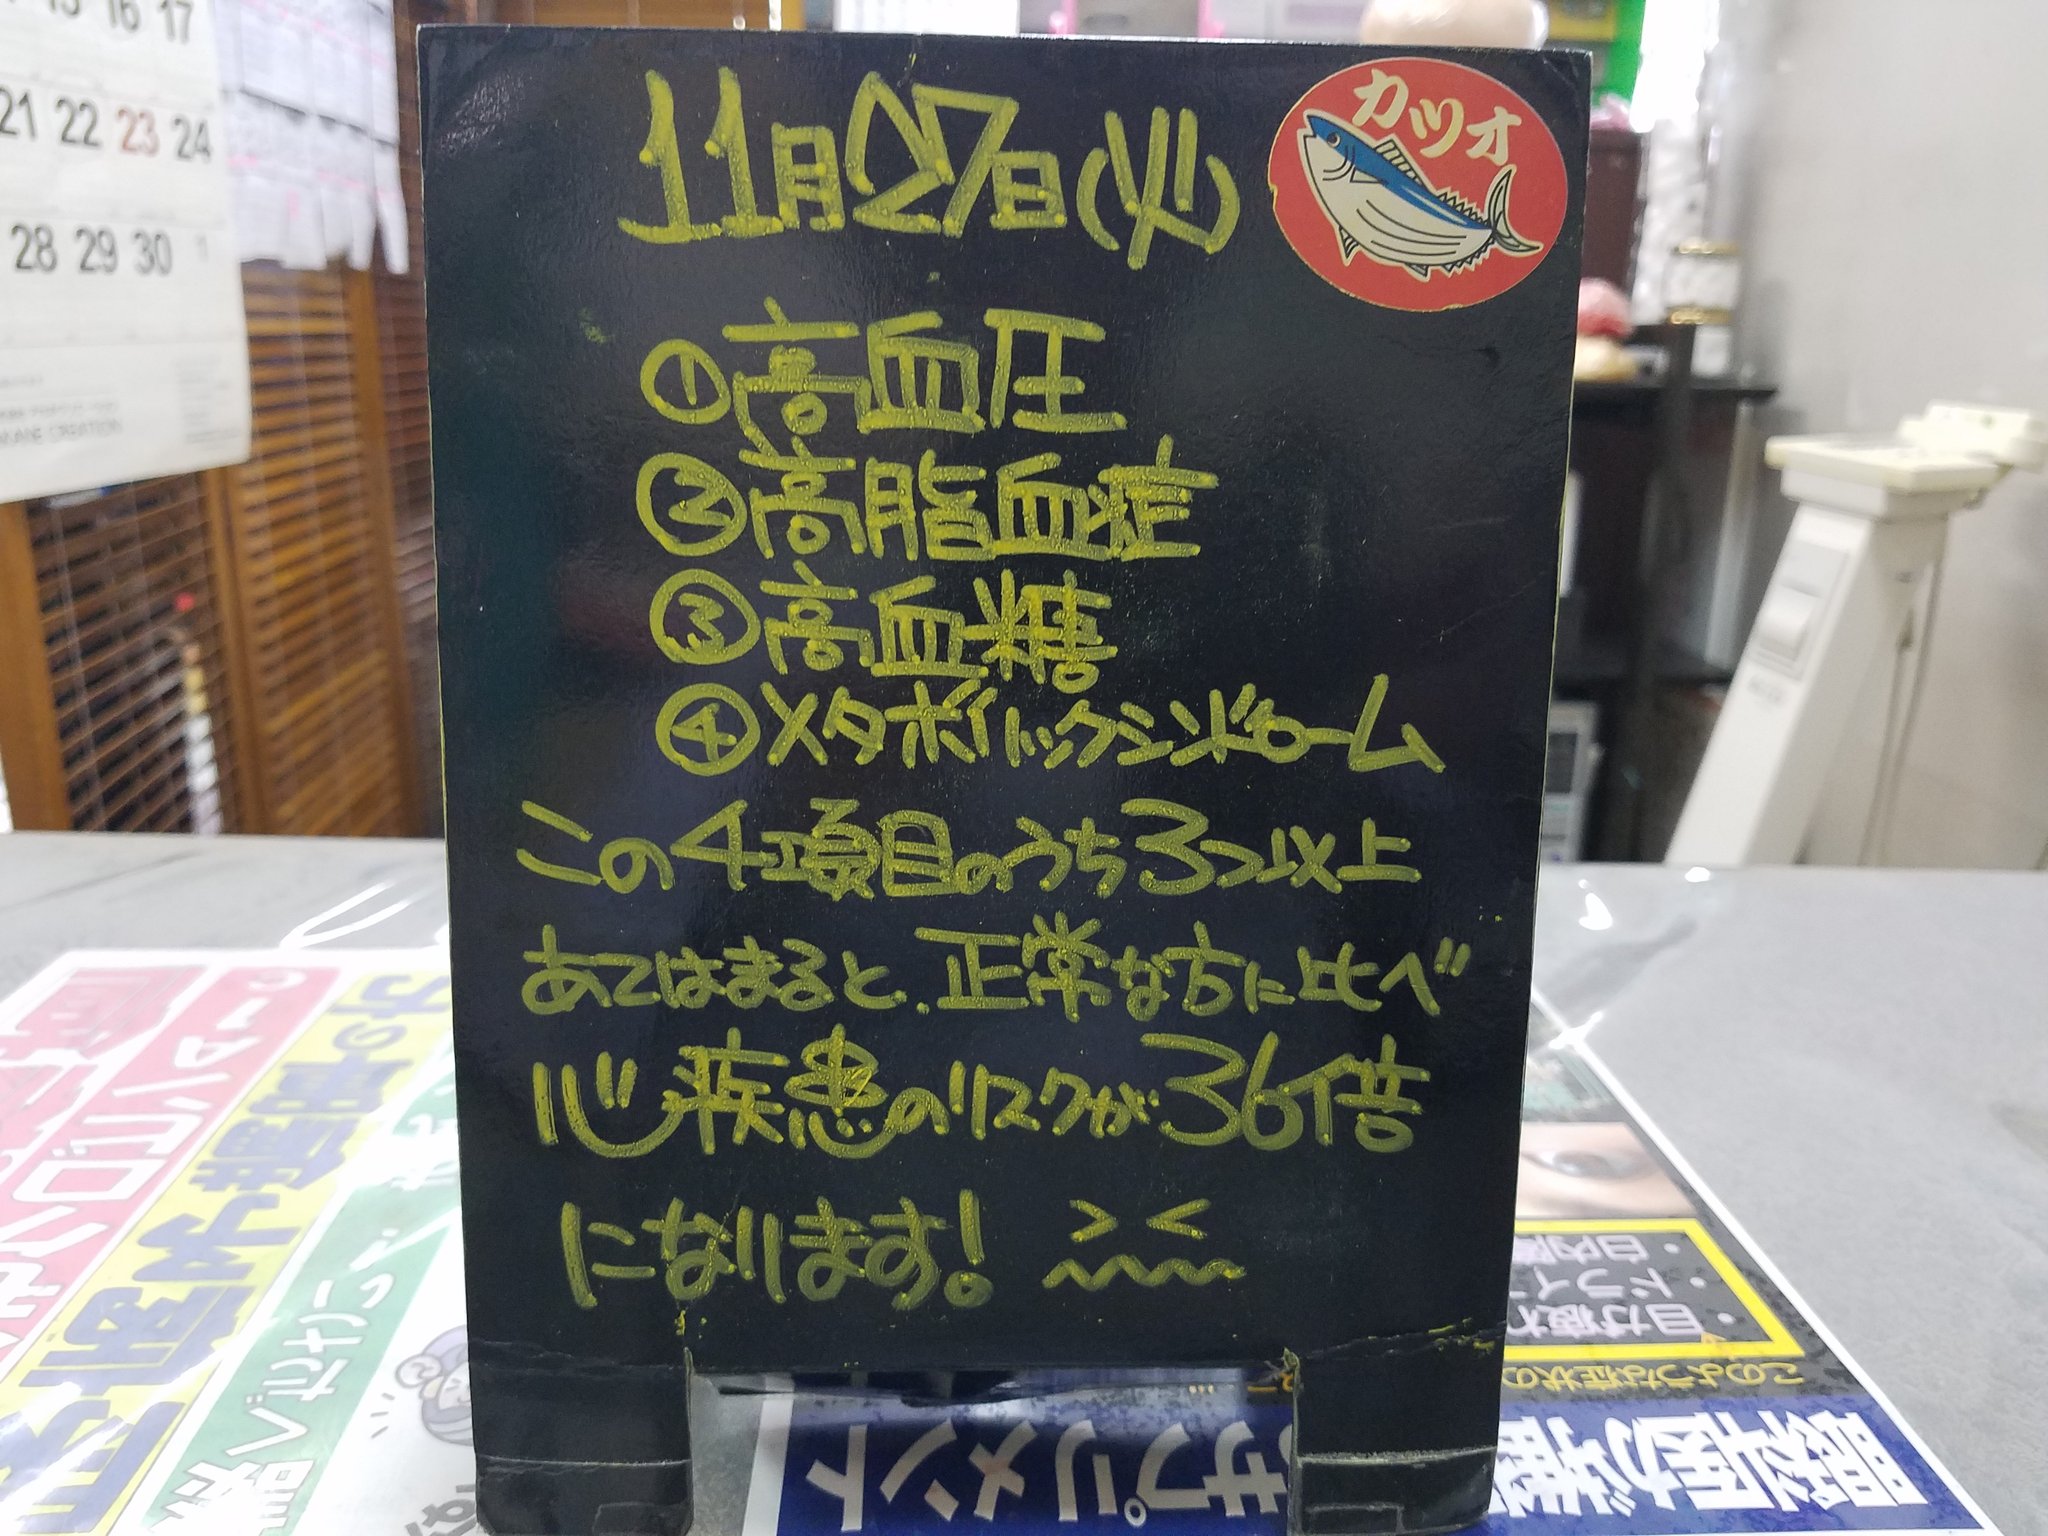 11月27日(火)
カツオ
①高血圧
②高脂血症
③高血糖
④メタボリックシンドローム
この4項目のうち3つ以上
あてはまると、正常な方に比べ
心疾患のリスクが36倍
になります!
16 17
21 22 23 24
28 29 30 1
サプリメント
眼科医が推
このような症状の
・目が疲れ
・ドライ
・白内障